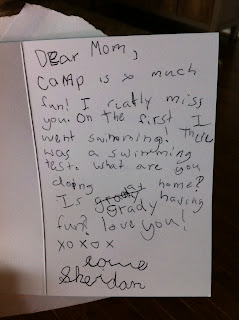 Dear Mom,
Camp is so much
fun! I really miss
you. On the first I
went swimming! There
was a swimming
test. What are you
doing home?
Is grady having
fun? love you!
xoxox
Love
Sheridan